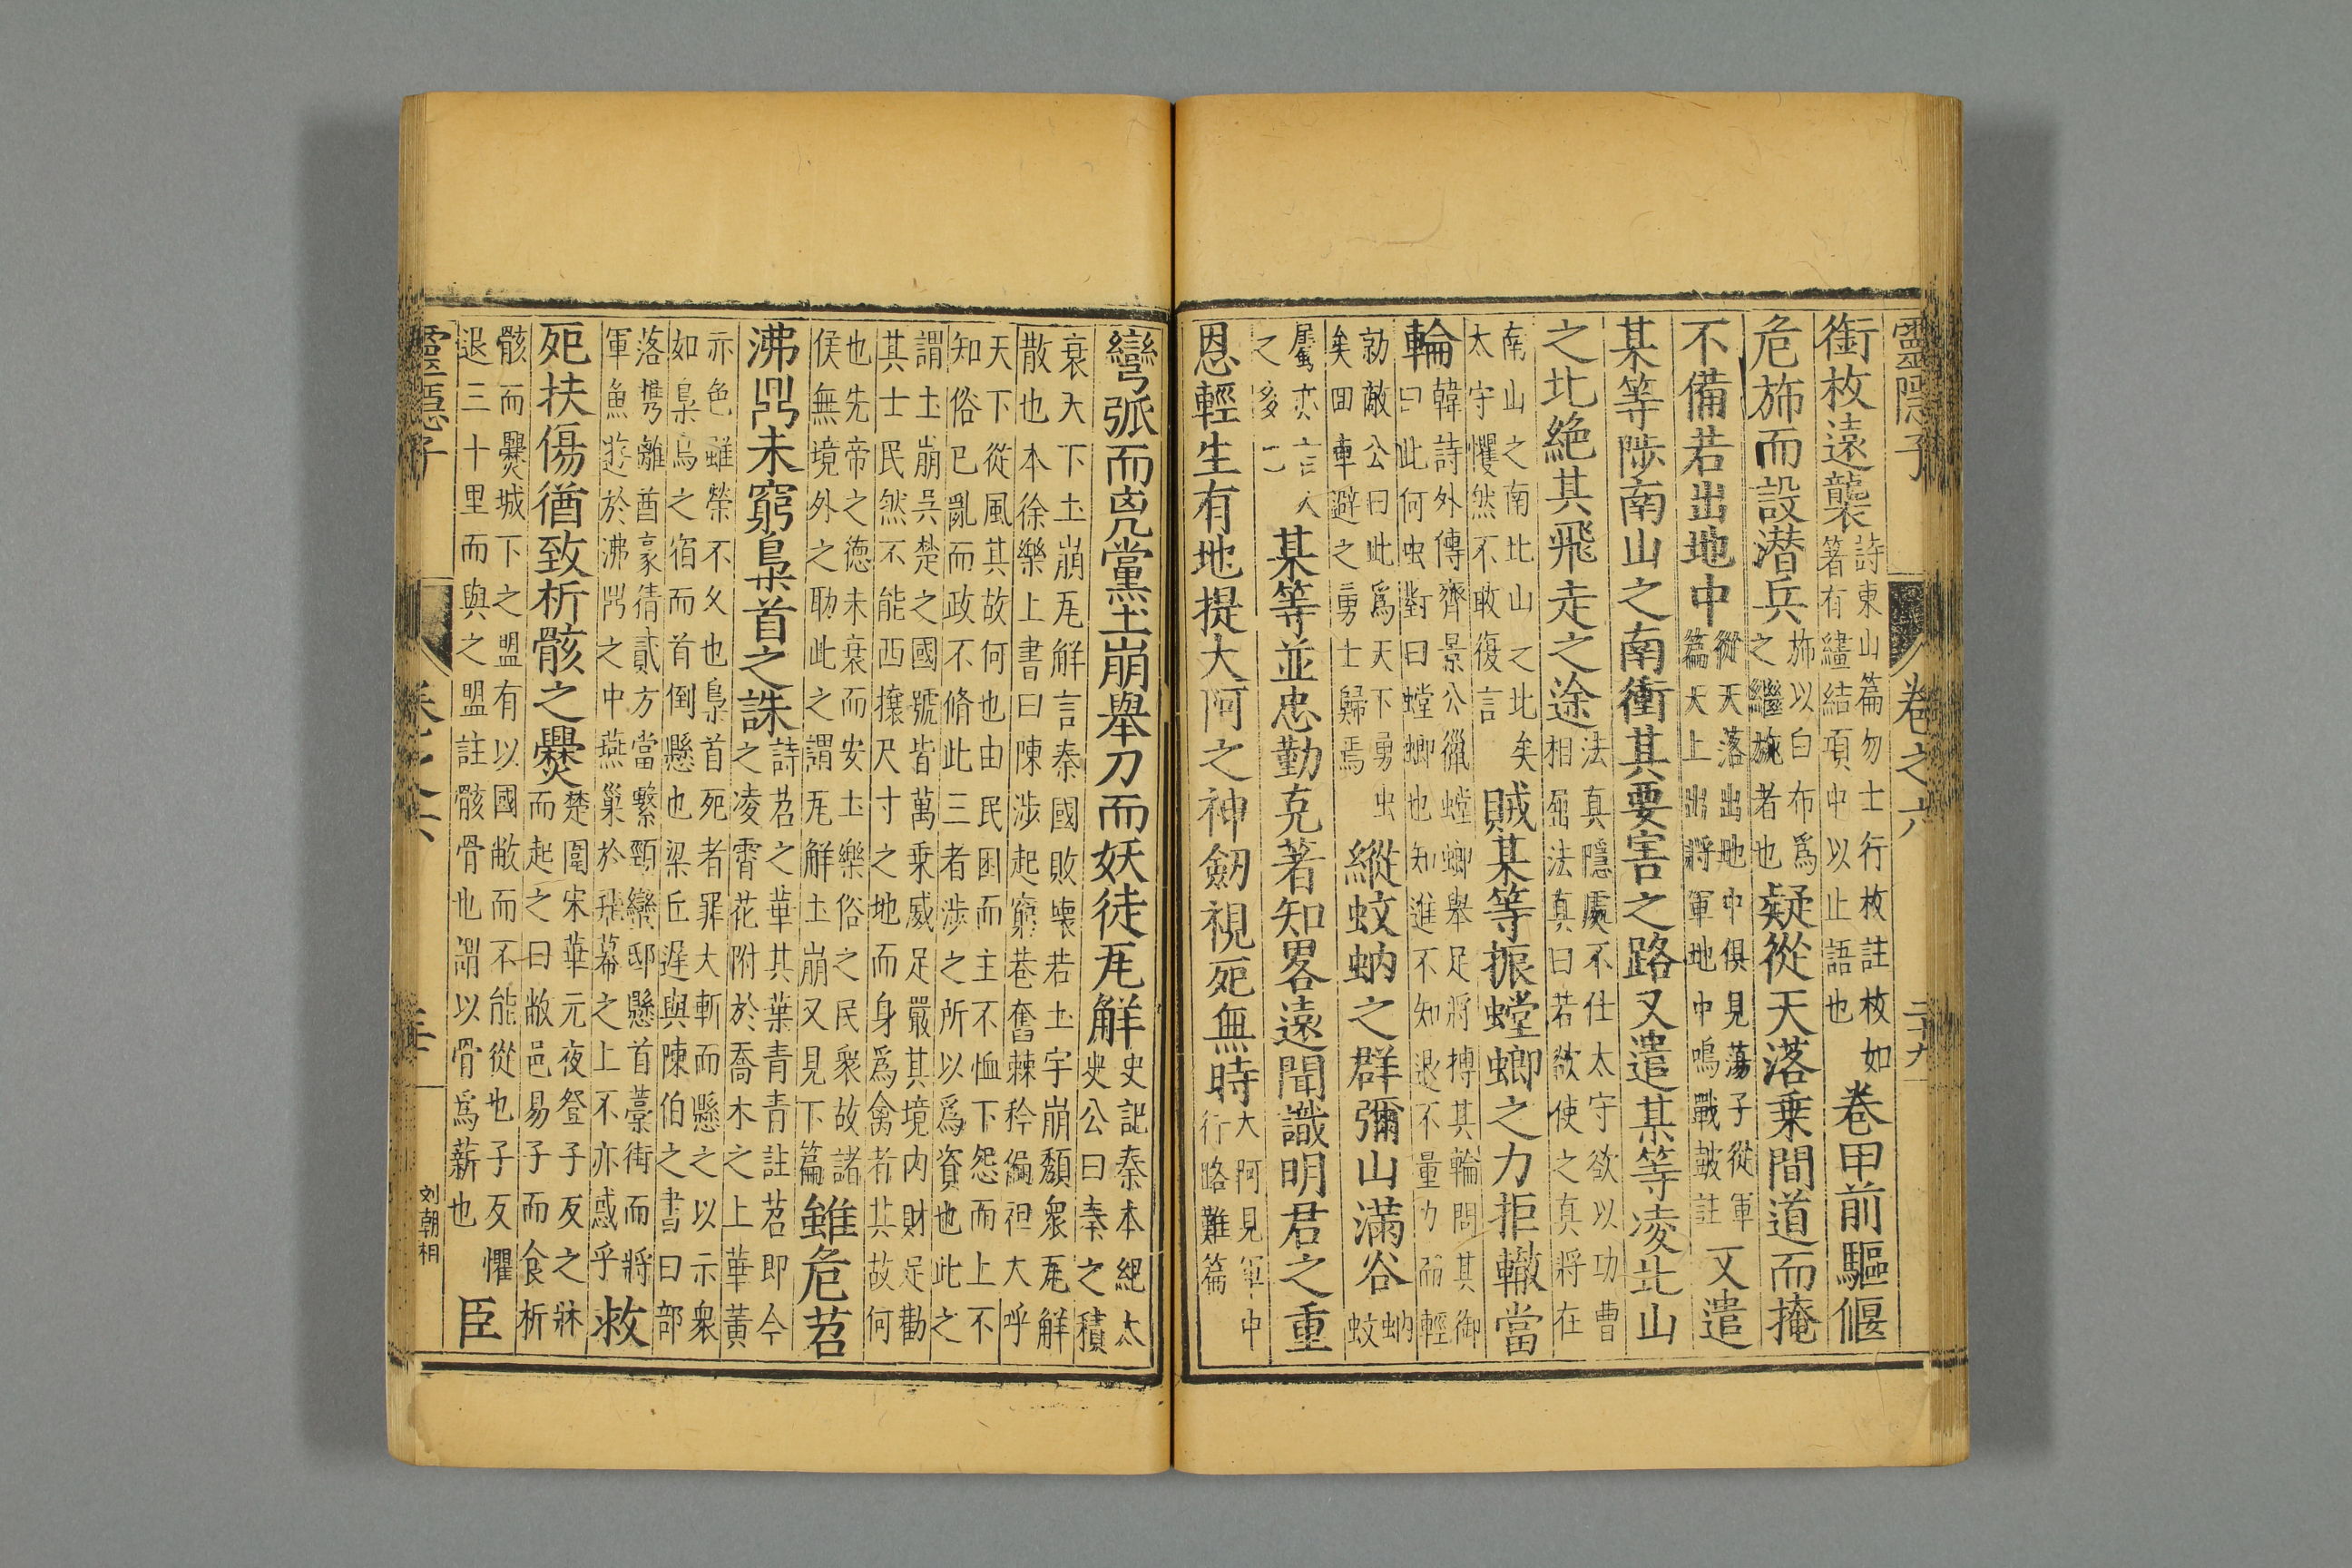 靈隱子
卷之六
二十九
銜枚遠襲詩東山篇勿士行枚註枚如
箸有繣結項中以止語也卷甲前驅偃
危斾而設潜兵斾以白布爲
之繼旐者也疑從天落乗間道而掩
不備若出地中從天落出地中俱見蕩子從軍
篇天上出將軍地中鳴戰皷註又遣
某等陟南山之南衝其要害之路又遣某等凌北山
之北絶其飛走之途法真隱處不仕太守欲以功曹
相屈法真曰若欲使之真將在
南山之南北山之北矣
太守懼然不敢復言賊某等振螳蜋之力拒轍當
輪韓詩外傳齊景公獵螳蜋舉足將搏其輪問其御
曰此何虫對曰螳蜋也知進不知退不量力而輕
勍敵公曰此爲天下勇虫
矣回車避之勇士歸焉縱蚊蚋之群彌山滿谷蚋
蚊
屬亦言人
之多一一某等並忠勤克著知畧遠聞識明君之重
恩輕生有地提大阿之神劔視死無時大阿見軍中
行路難篇
彎弧而凶黨土崩舉刀而妖徒瓦解史記秦本紀太
史公曰秦之積
衰天下土崩瓦解言秦國敗壞若土宇崩頽衆瓦解
散也本徐樂上書曰陳涉起窮巷奮棘矜偏袒大呼
天下從風其故何也由民困而主不恤下怨而上不
知俗已亂而政不脩此三者涉之所以爲資也此之
謂土崩吳楚之國號皆萬乗威足嚴其境内財足勸
其士民然不能西攘尺寸之地而身爲禽者其故何
也先帝之德未衰而安土樂俗之民衆故諸
侯無境外之助此之謂瓦解土崩又見下篇雖危苕
沸鼎未窮梟首之誅詩苕之華其葉青青註苕即今
之凌霄花附於喬木之上華黃
赤色雖榮不久也梟首死者罪大斬而懸之以示衆
如梟鳥之宿而首倒懸也梁丘遲與陳伯之書曰部
落攜離酋豪猜貳方當繫頸蠻邸懸首藁街而將
軍魚遊於沸鼎之中燕巢於飛幕之上不亦惑乎救
死扶傷猶致析骸之爨楚圍宋華元夜登子反之牀
而起之曰敝邑易子而食析
骸而爨城下之盟有以國敝而不能從也子反懼
退三十里而與之盟註骸骨也謂以骨爲薪也臣
靈隱子
卷之六
三十
刘朝相